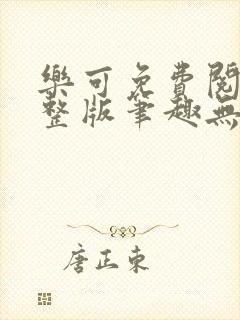 樂可免費閱
整版筆趣無
唐正東